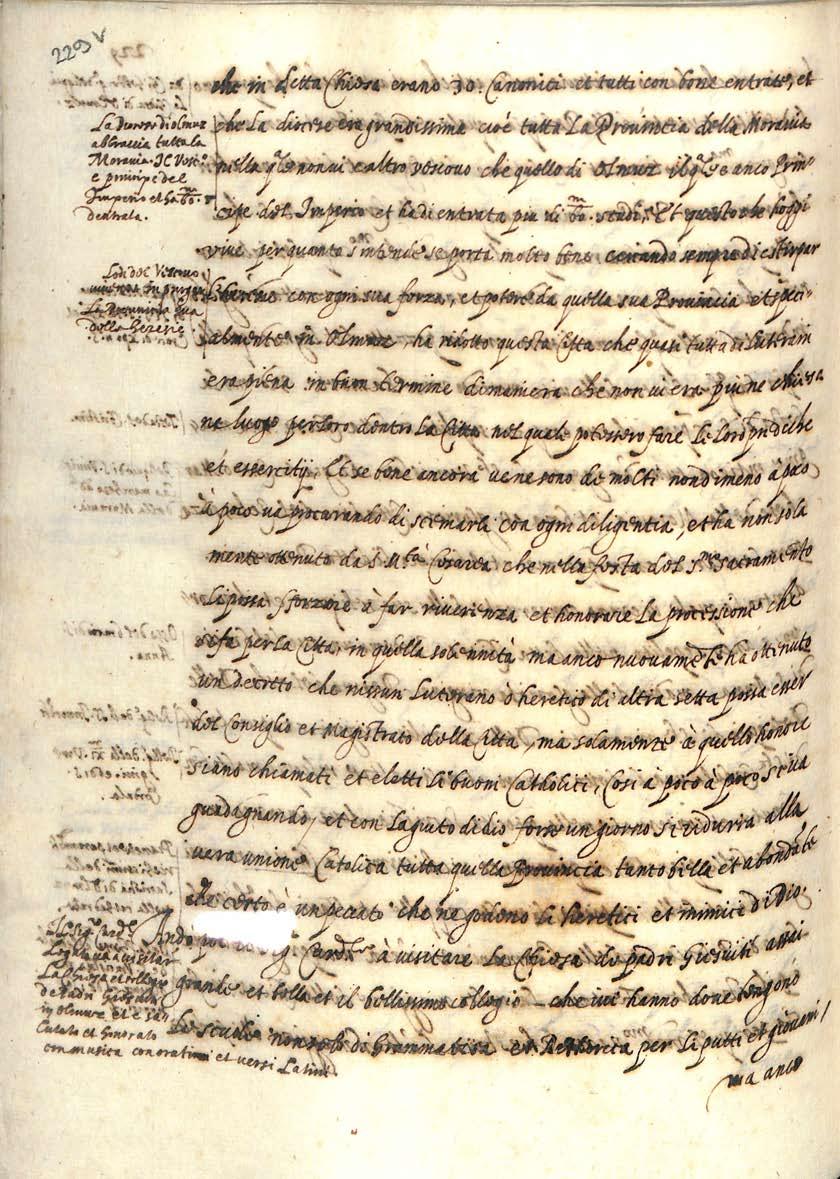 229 v
che in detta Chiesa erano 30. Canonici et tutti con bone entrate, et
che La diocese era grandissima cioè tutta La Provincia della Moravia
nella qle non vi e altro vescovo che quello di Olmuz il qle e anco Prin¬
cipe del Imperio et ha di entrata piu di scudi, Et questo che hoggi
vive per quanto s'intende se porta molto bene cercando sempre di estirpar
l'heresie con ogni sua forza, et potere da quella sua Provincia et speci¬
almente in Olmuz, ha ridotto questa Citta che quasi tutta di Luterani
era piena in buon termine di maniera che non vi era piu ne chiesa
ne luogo per loro dentro La Citta nel quale potessero fare le loro prediche
et essercitij, Et se bene ancora ve ne sono de molti nondimeno a poco
à poco va procurando di scemarli con ogni diligentia, et ha non sola
mente ottenuto da S. M.tà Cesarea che nella festa del S.mo Sacramento
Li possa sforzare à far riverenza et honorare La processione che
si fa per la Citta, in quella solennità ma anco nuovamẽte ha ottenuto
un decreto che nissun Luterano ò heretico di altra setta possa esser
del Consiglio et Magistrato della Citta, ma solamente à quelli honori
siano chiamati et eletti li buoni Catholici, Cosi à poco à poco si va
guadagnando, et con l'agiuto di dio forse un giorno si ridurra alla
vera unione Catolica tutta quella Provincia tanto bella et abondãte
che certo è un peccato che ne godono li heretici et inimici di Dio.
Andò Card.le à visitare La Chiesa de padri Giesuiti assai
grande et bella et il bellissimo collegio che ivi hanno dove tengono
Le scuole non solo di Grammatica et Rethorica per li putti et giovani,
ma anco
La Diocese di olmuz
abbraccia tutta la
Moravia. Il Vesco
e principe del
Imperio et ha
de entrata.
Lodi del Vescovo
in purgar
La Provincia sua
dalle heresie.
Il Sig.r
Legato va a visitar
La chiesa et collegio
de Padri Giesuiti
in olmuz et è sa¬
lutato et honorato
con musica con orationi et versi Latini.